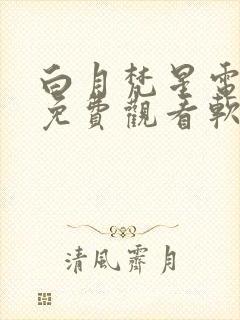 白月梵星電
免費觀看軟
清風霽月